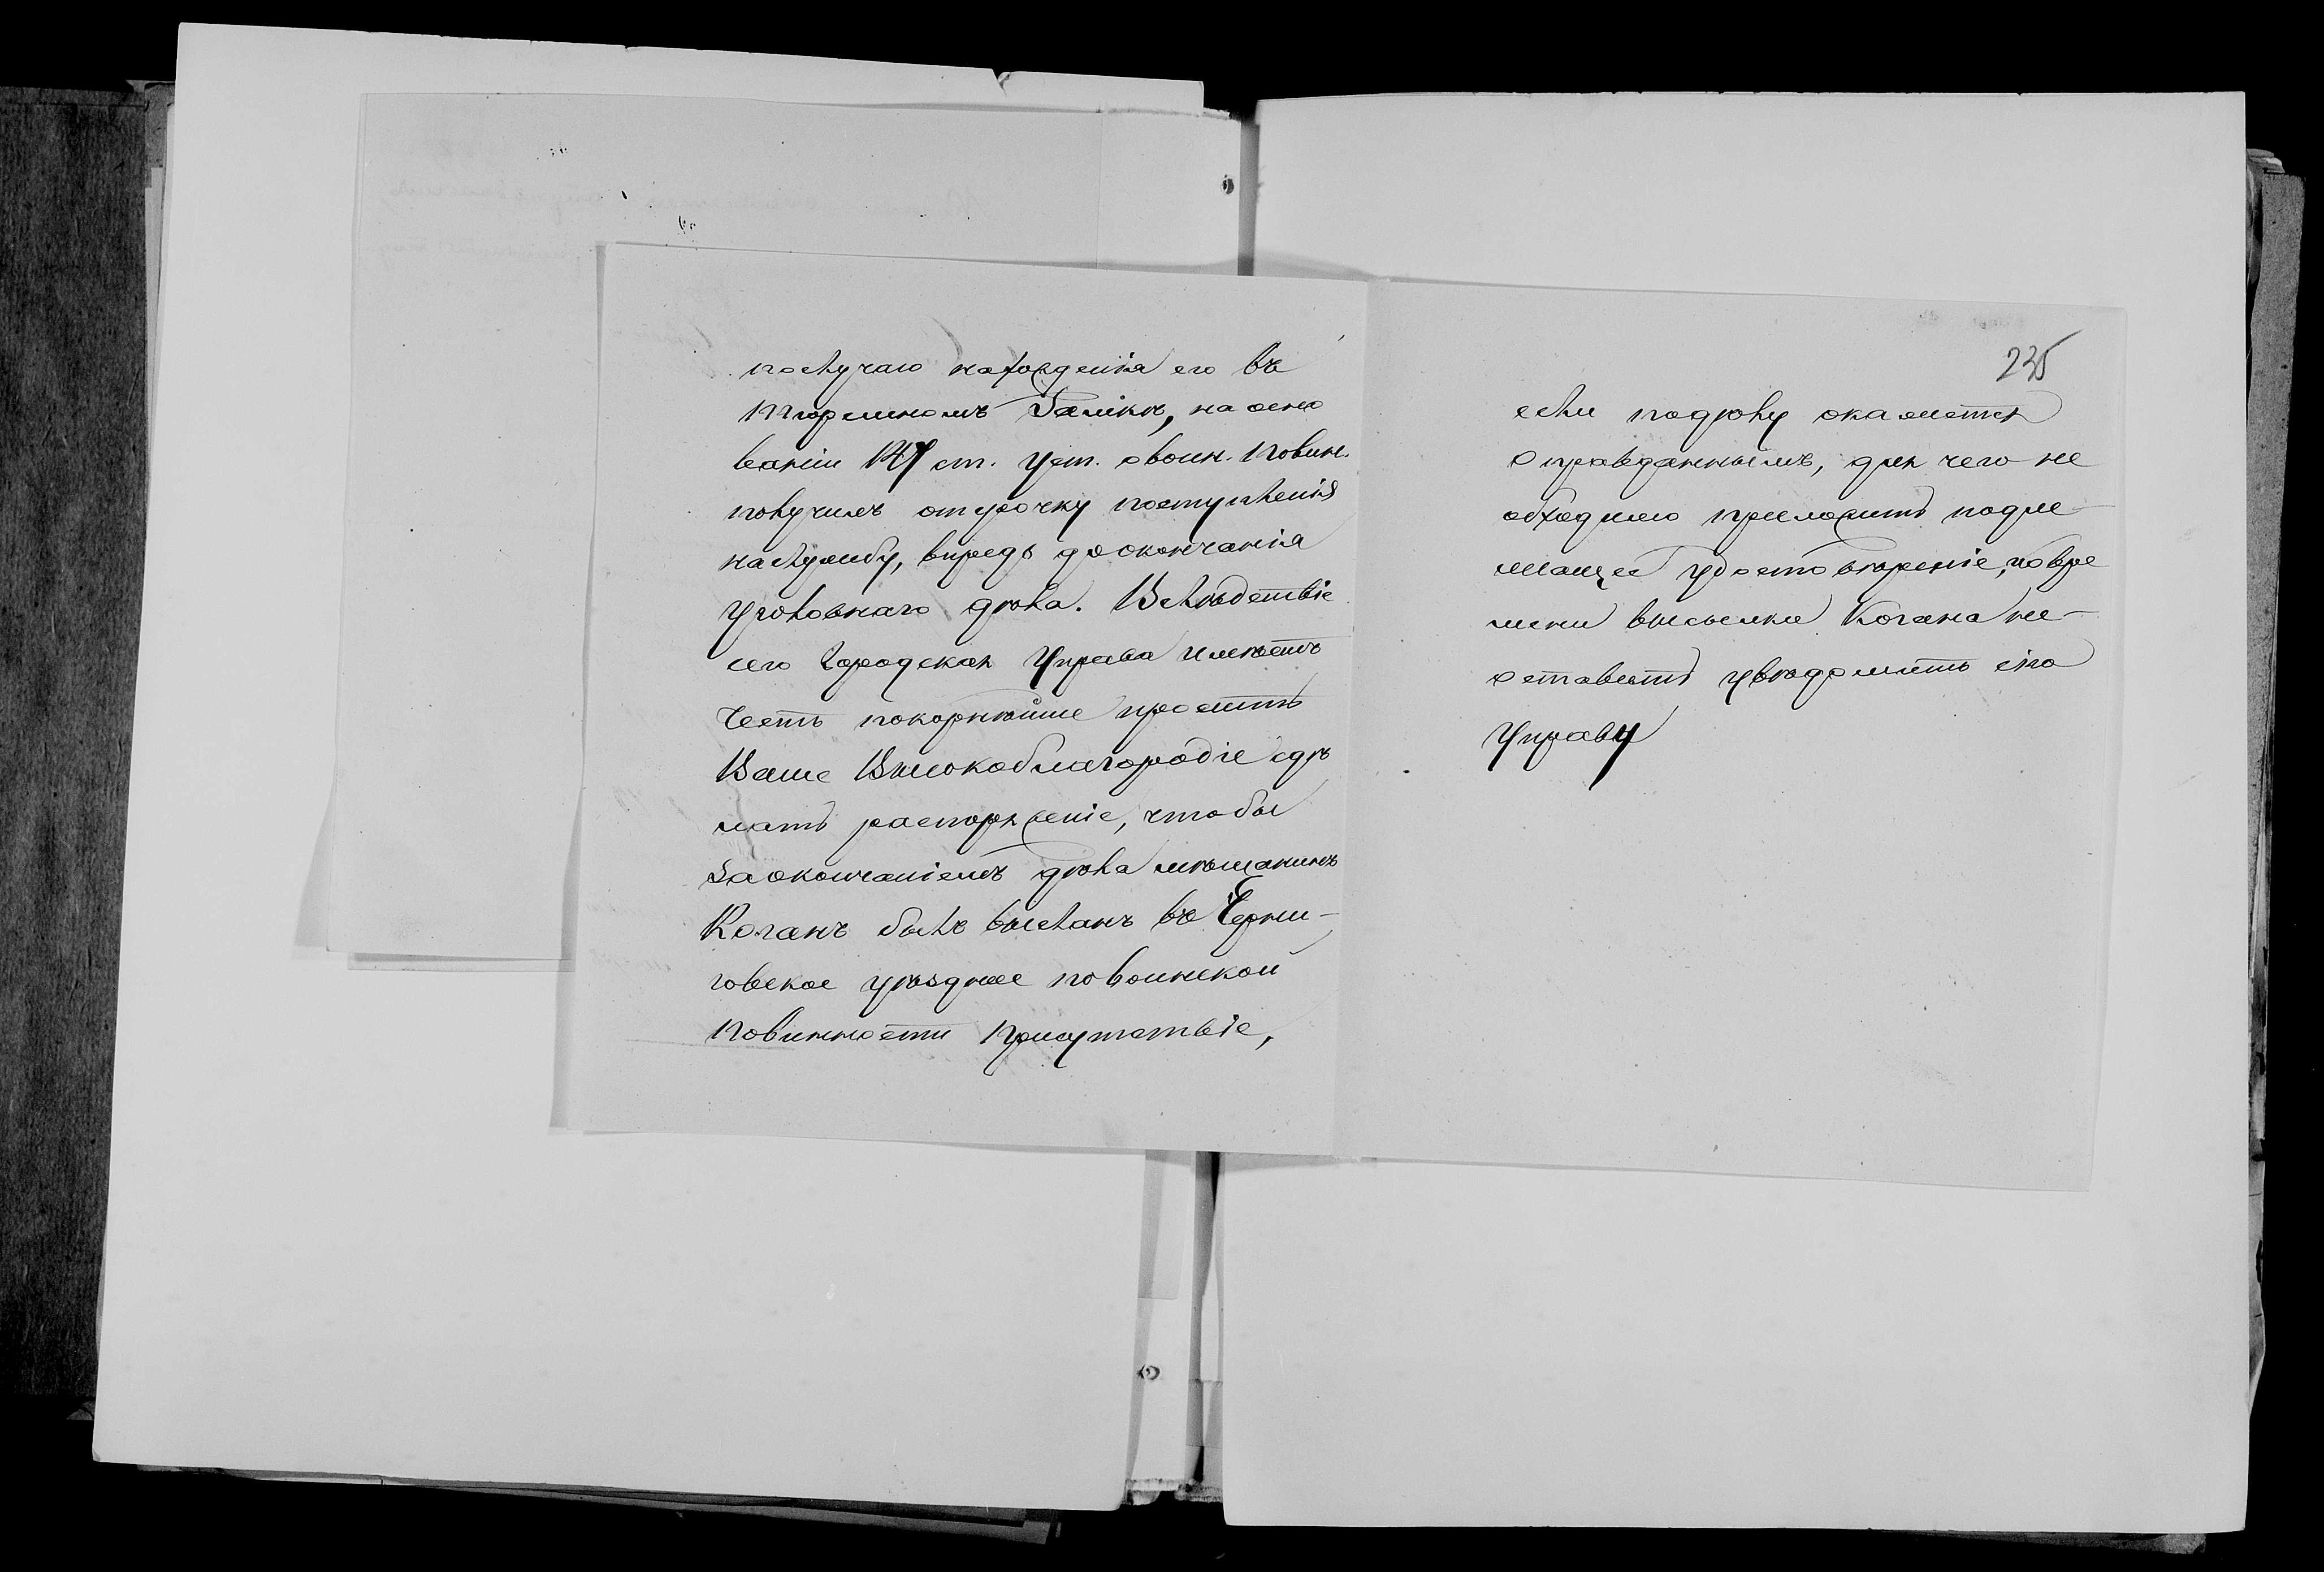 послучаю нахожденія его въ
Тюремномъ Замкѣ, на осно
ваніи 147 ст. Уст. овоин. Повин.
получилъ отсрочку поступленія
наслужбу, впредь доокончанія
уголовнаго дѣла. Вслѣдствіе
сего Городская Управа имѣетъ
честь покорнѣйше просить
Ваше Высокоблагородіе сдѣ
лать распоряженіе, чтобы
заокончаніемъ дѣла мѣщанинъ
Коганъ былъ высланъ въ Черни-
говское уѣздное повоинской
повинности Присутствіе,
235
если подѣлу окажется
оправданнымъ, для чего не
обходимо приложить надле-
жащее удостовѣреніе, ио вре
мени высылки Когана не-
оставить увѣдомить сію
Управу